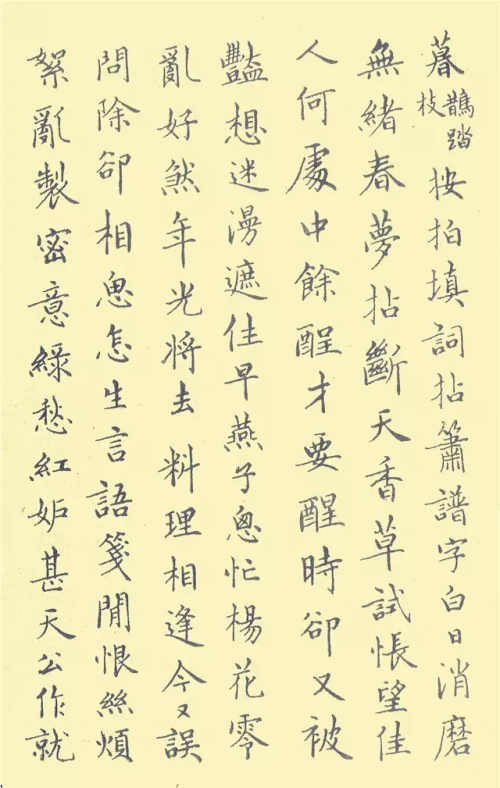 暮鵲踏枝按拍填詞拈簫譜字白日消磨
無緒春夢拈斷天香草試悵望佳
人何處中餘酲才要醒時卻又被
豔想迷漫遮佳早燕子悤忙楊花零
亂好煞年光將去料理相逢今又誤
問除卻相思怎生言語箋閒恨絲煩
絮亂製密意綠愁紅妒甚天公作就